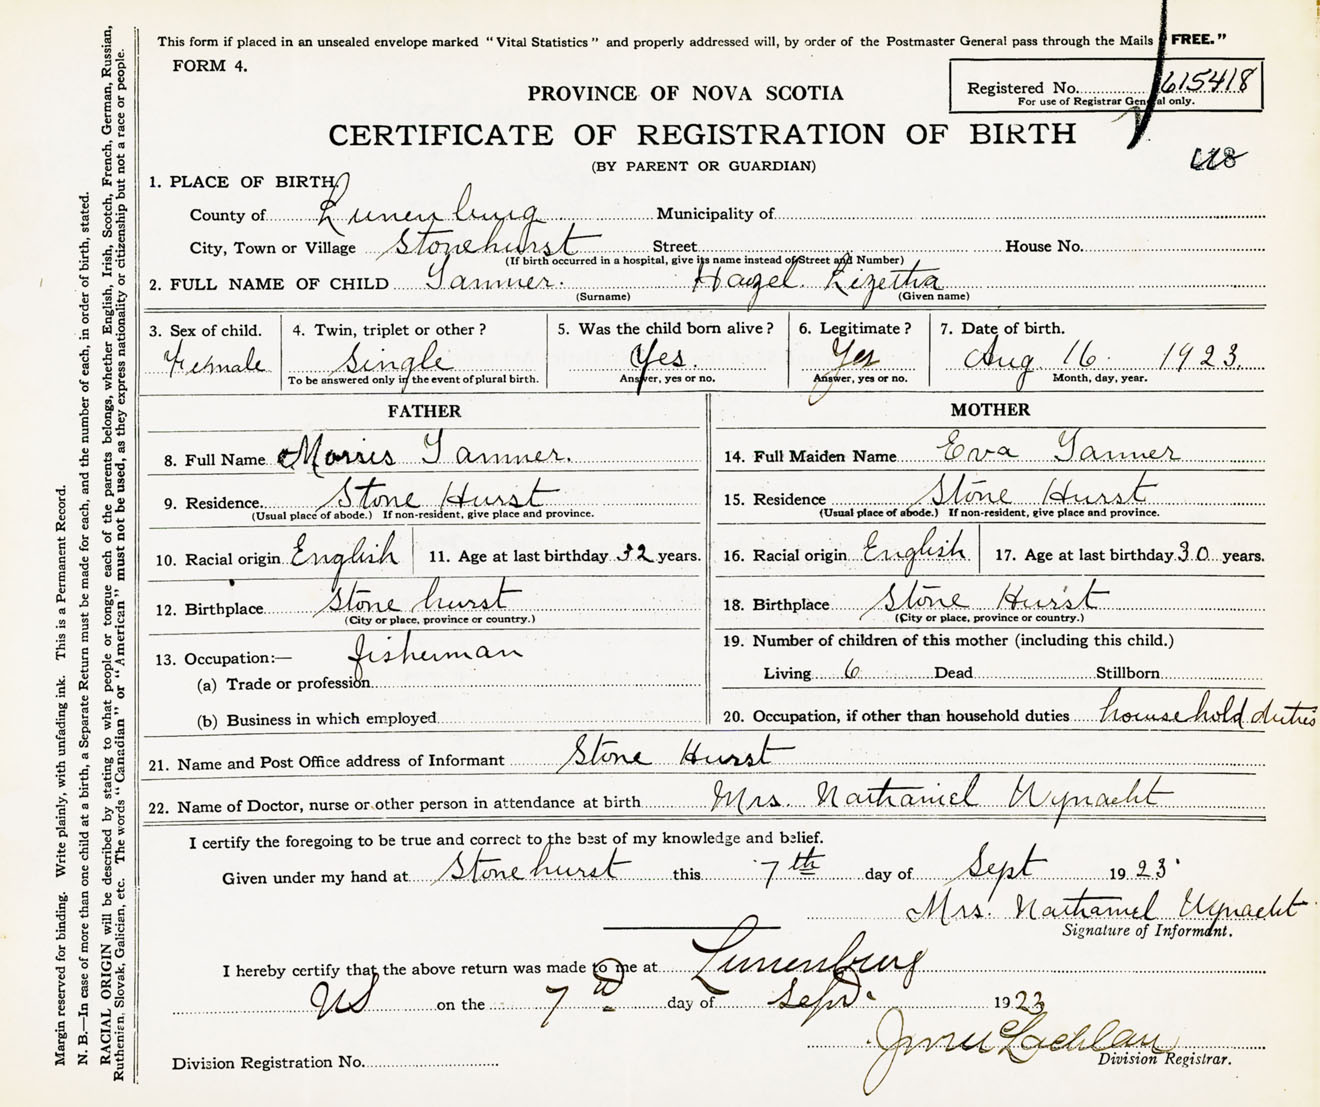 This form if placed in an unsealed envelope marked "Vital Statistics" and properly addressed will, by order of the Postmaster General pass through the Mails FREE."
FORM 4.
Registered No. 615418
For use of Registrar General only.
PROVINCE OF NOVA SCOTIA
CERTIFICATE OF REGISTRATION OF BIRTH
(BY PARENT OR GUARDIAN)
1. PLACE OF BIRTH
County of Lunenburg Municipality of
City, Town or Village Stonehurst Street House No.
(If birth occurred in a hospital, give its name instead of Street and Number)
2. FULL NAME OF CHILD Tanner. Hazel Lizetha
(Surname) (Given name)
3. Sex of child. 4. Twin, triplet or other? 5. Was the child born alive? 6. Legitimate? 7. Date of birth.
Female single Yes. Yes Aug. 16. 1923.
To be answered only in the event of plural birth. Answer, yes or no. Answer, yes or no. Month, day, year.
FATHER
8. Full Name Morris Tanner.
9. Residence. Stone Hurst
(Usual place of abode.) If non-resident, give place and province.
10. Racial origin English 11. Age at last birthday 32 years.
12. Birthplace Stone hurst
(City or place, province or country.)
13. Occupation:— fisherman
(a) Trade or profession
(b) Business in which employed
MOTHER
14. Full Maiden Name Eva Tanner
15. Residence Stone Hurst
(Usual place of abode.) If non-resident, give place and province.
16. Racial origin English 17. Age at last birthday 30 years.
18. Birthplace Stone Hurst
(City or place, province or country.)
19. Number of children of this mother (including this child.)
Living 6 Dead Stillborn
20. Occupation, if other than household duties household duties
21. Name and Post Office address of Informant Stone Hurst
22. Name of Doctor, nurse or other person in attendance at birth Mrs. Nathaniel Wynacht
I certify the foregoing to be true and correct to the best of my knowledge and belief.
Given under my hand at Stonehurst this 7th day of Sept 1923
Mrs. Nathaniel Wynacht
Signature of Informant.
I hereby certify that the above return was made to me at Lunenburg
NS on the 7th day of Sept. 1923
Lachlan
Division Registrar.
Division Registration No.
Margin reserved for binding. Write plainly, with unfading ink. This is a Permanent Record.
N. B.—In case of more than one child at a birth, a Separate Return must be made for each, and the number of each, in order of birth, stated.
RACIAL ORIGIN will be described by stating to what people or tongue each of the parents belongs, whether English, Irish, Scotch, French, German, Russian,
Ruthenian, Slovak, Galician, etc. The words "Canadian" or "American" must not be used, as they express nationality or citizenship but not a race or people.